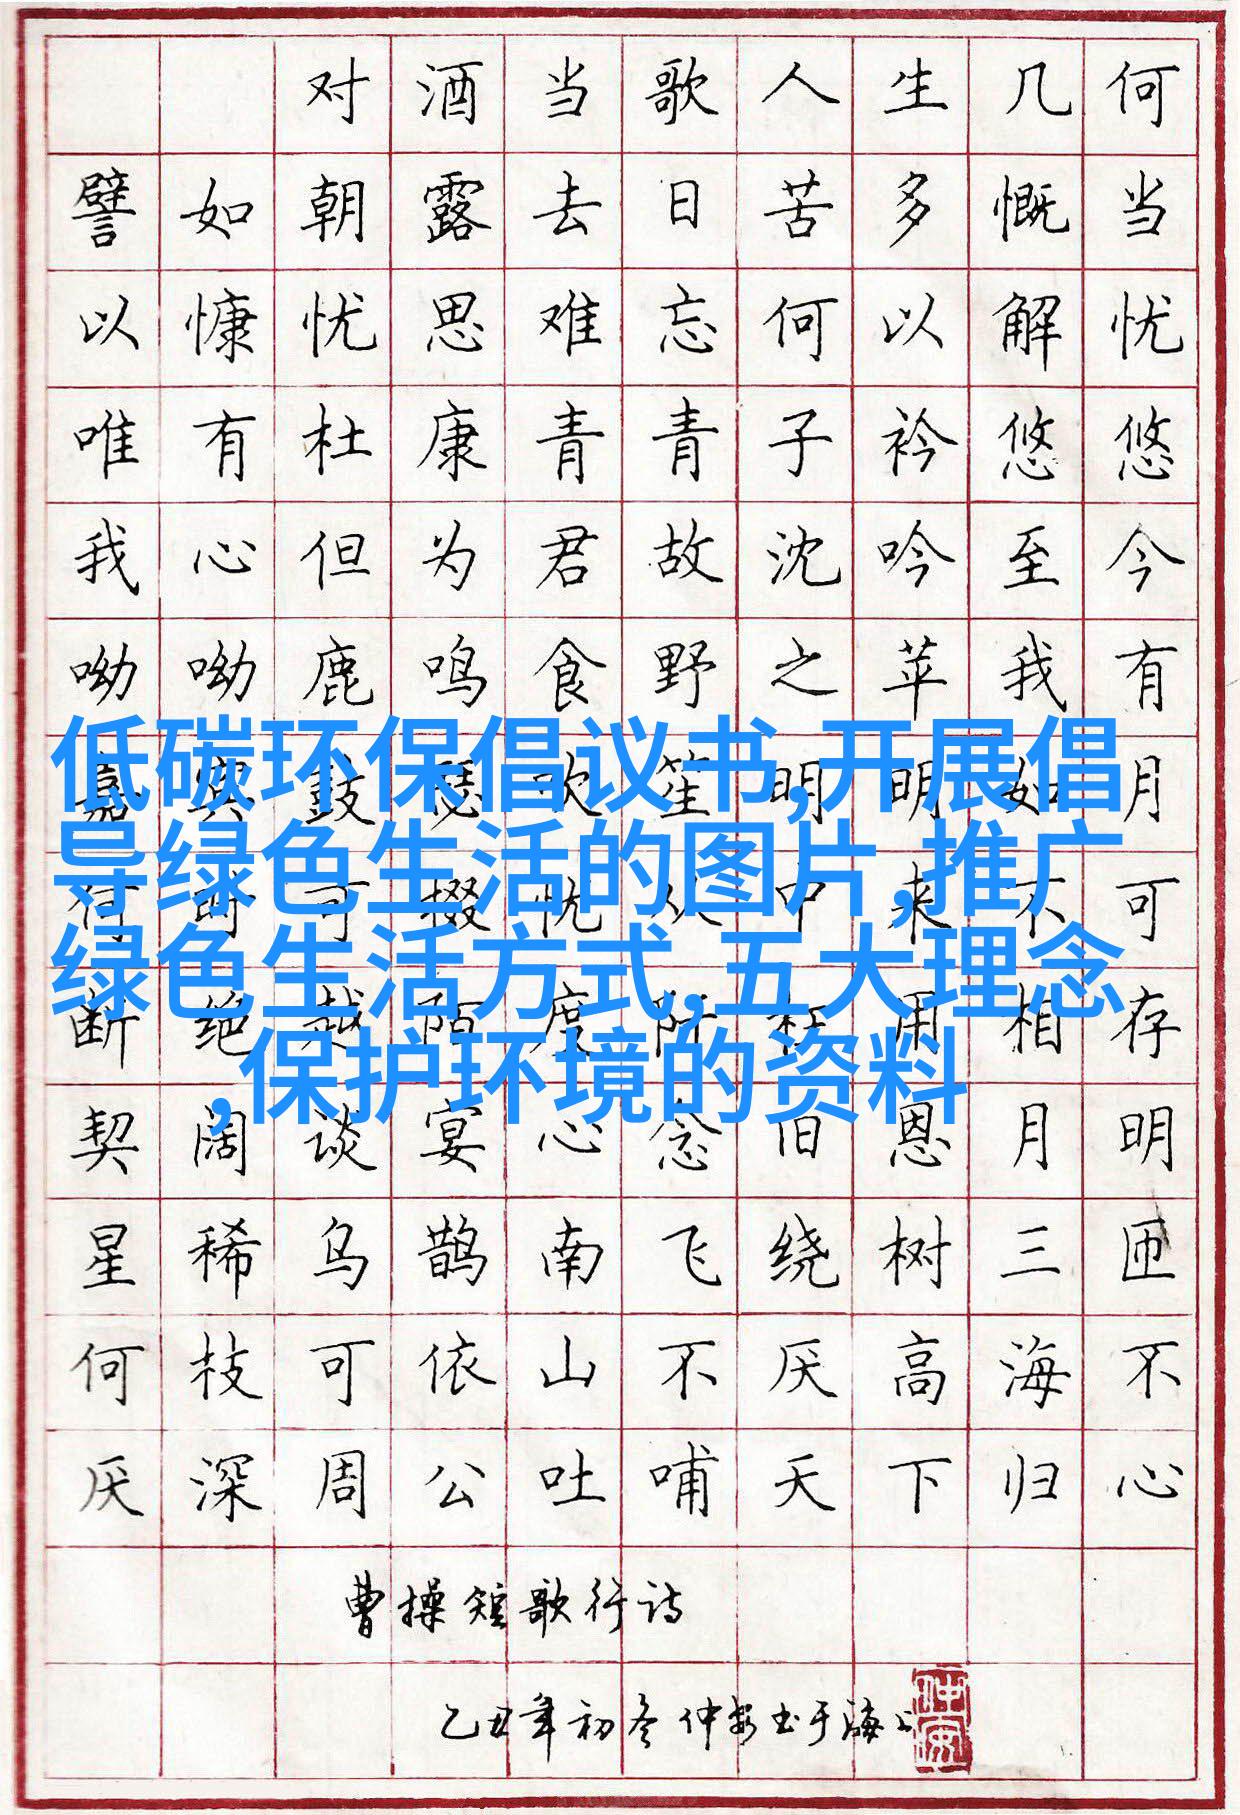 对酒当歌人生几何
譬如朝露去日苦多慨当
以慷忧思难忘何以解忧
唯有杜康青青子衿悠悠
我心但为君故沈吟至今
呦呦鹿鸣食野之苹我有
嘉宾鼓瑟吹笙明明如月
何时可掇忧从中来不可
断绝越陌度阡枉用相存
契阔谈宴心念旧恩月明
星稀乌鹊南飞绕树三匝
何枝可依山不厌高海不
厌深周公吐哺天下归心
曹操短歌行诗
乙丑年初冬仲安书于海上
仲安
低碳环保倡议书,开展倡
导绿色生活的图片,推广
绿色生活方式,五大理念
,保护环境的资料